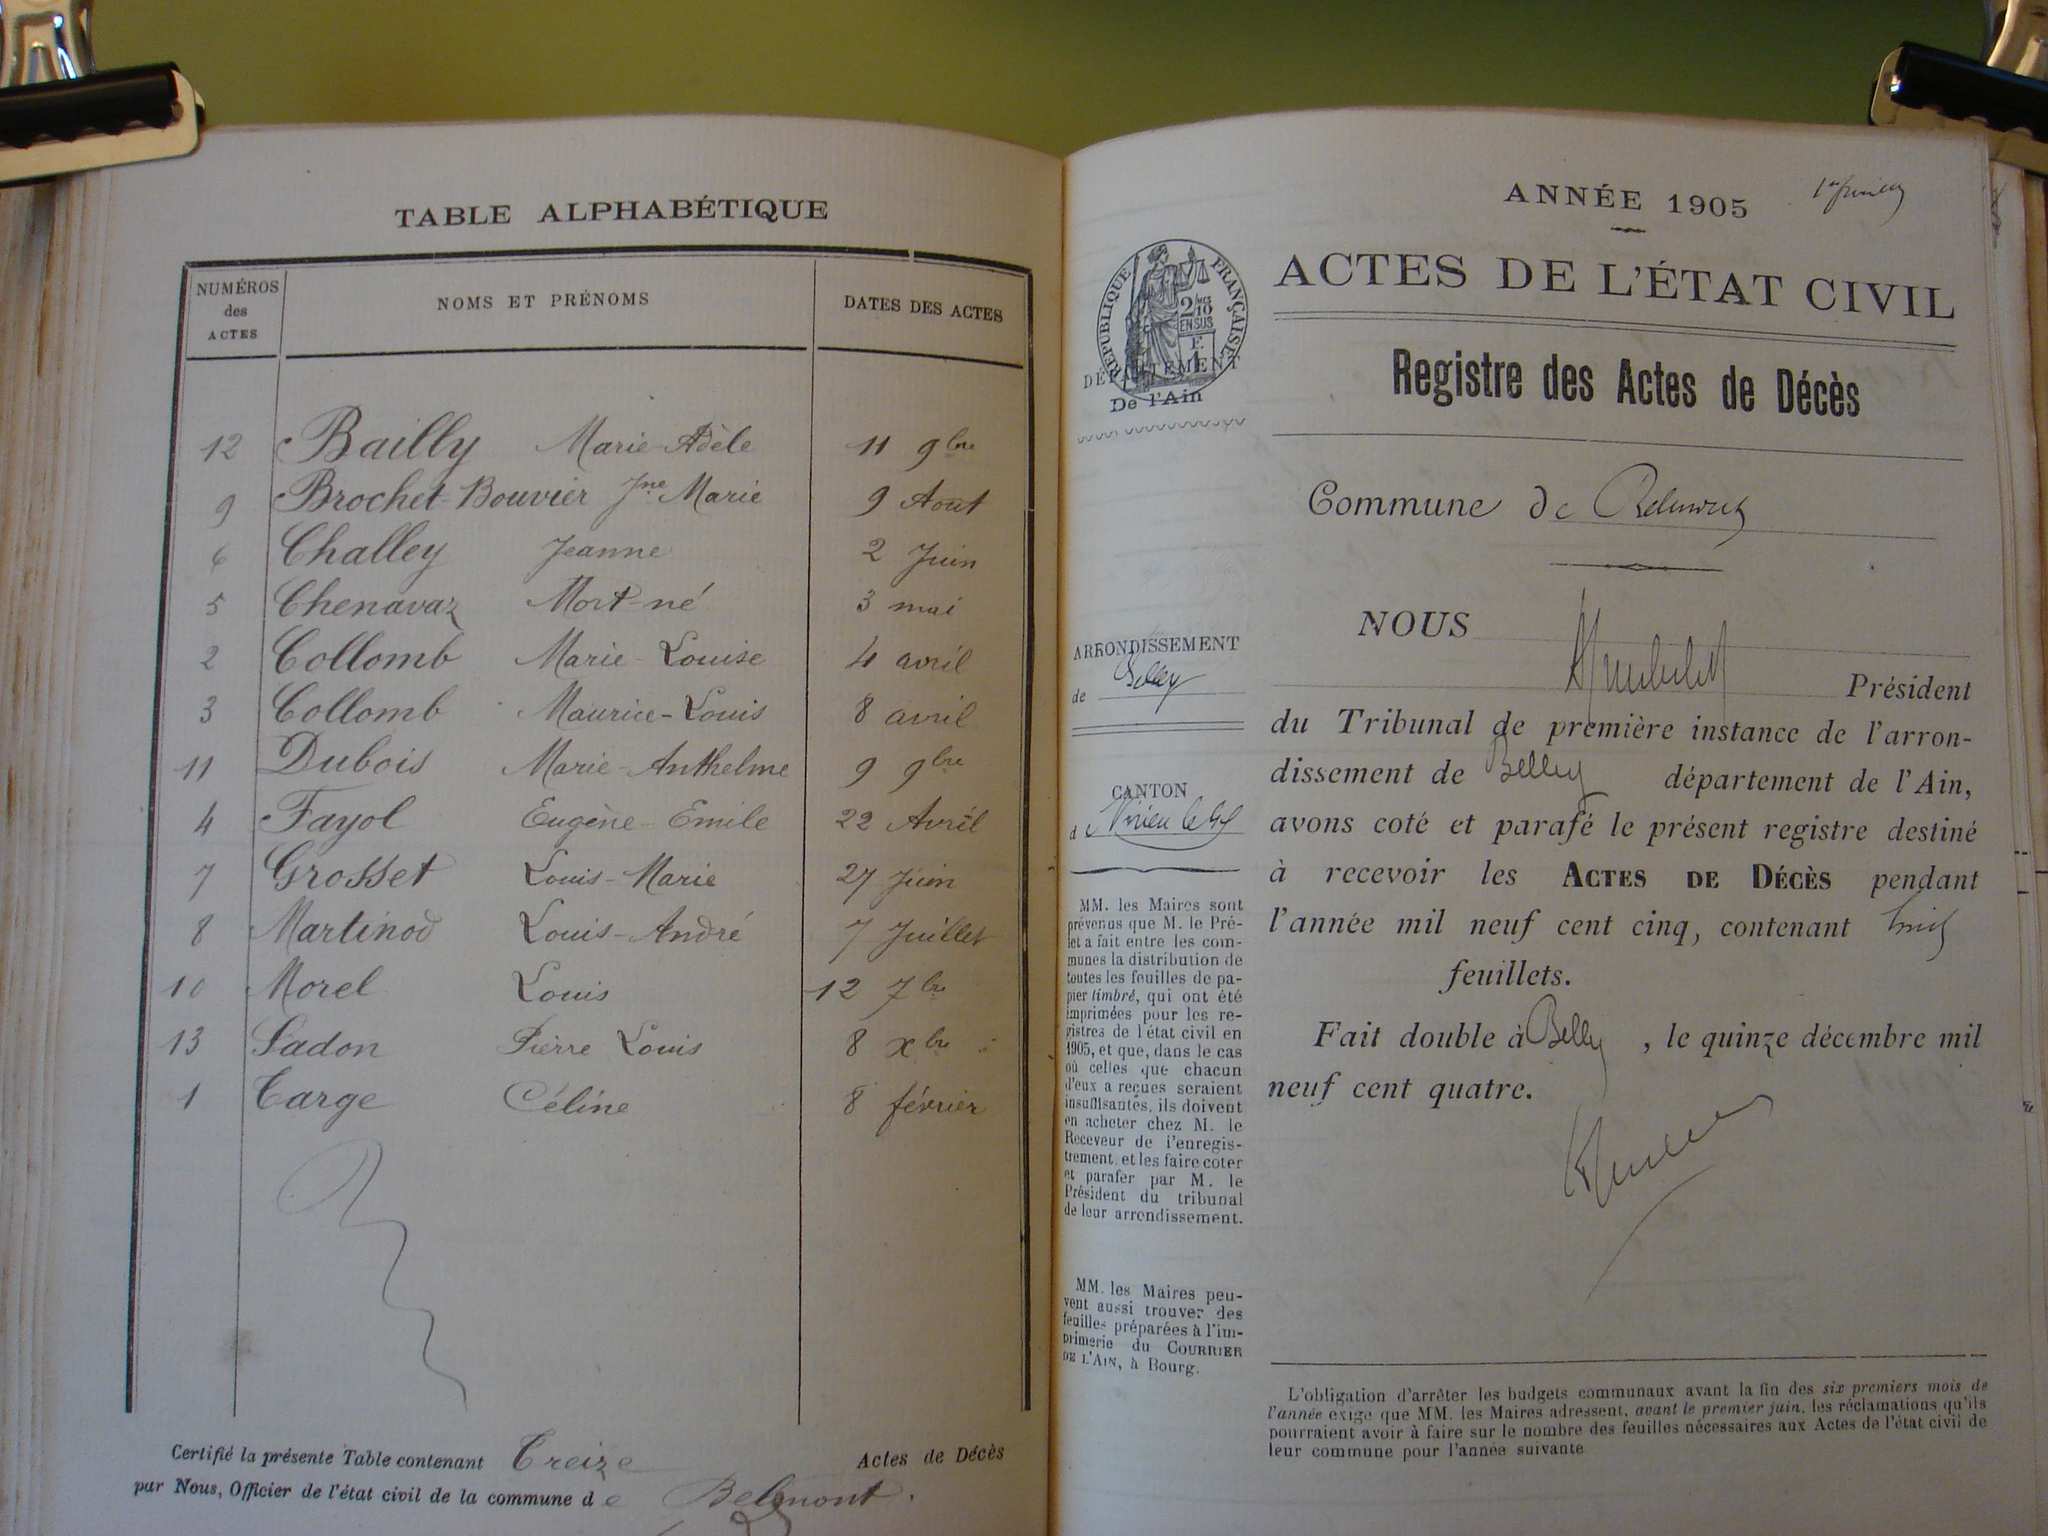 TABLE ALPHABÉTIQUE
NUMÉROS des ACTES NOMS ET PRÉNOMS DATES DES ACTES
12 Bailly Marie-Adèle 11 9bre
9 Brochet-Bouvier Jne Marie 9 Aout
6 Challey Jeanne 2 Juin
5 Chenavaz Mort-né 3 mai
2 Collomb Marie-Louise 4 avril
3 Collomb Maurice-Louis 8 avril
11 Dubois Marie-Anthelme 9 9bre
4 Fayol Eugène-Emile 22 Avril
7 Grosset Louis-Marie 27 Juin
8 Martinod Louis-André 7 Juillet
10 Morel Louis 12 7bre
13 Sadon Pierre Louis 8 xbre
1 Targe Céline 8 février
Certifié la présente Table contenant Treize Actes de Décès
par Nous, Officier de l'état civil de la commune de Belmont.
ANNÉE 1905
ACTES DE L'ÉTAT CIVIL
RÉPUBLIQUE FRANÇAISE
2/10
EN SUS
DÉPARTEMENT
De l'Ain
Registre des Actes de Décès
Commune de Belmont
ARRONDISSEMENT
de Belley
CANTON
de Virieu le Gd
MM. les Maires sont
prévenus que M. le Pré-
fet a fait entre les com-
munes la distribution de
toutes les feuilles de pa-
pier timbré, qui ont été
imprimées pour les re-
gistres de l'état civil en
1905, et que, dans le cas
où celles que chacun
d'eux a reçues seraient
insuffisantes, ils doivent
en acheter chez M. le
Receveur de l'enregis-
trement, et les faire coter
et parafer par M. le
Président du tribunal
de leur arrondissement.
MM. les Maires peu-
vent aussi trouver des
feuilles préparées à l'im-
primerie du COURRIER
DE L'AIN, à Bourg.
NOUS
Président
du Tribunal de première instance de l'arron-
dissement de Belley département de l'Ain,
avons coté et parafé le présent registre destiné
à recevoir les ACTES DE DÉCÈS pendant
l'année mil neuf cent cinq, contenant
feuillets.
Fait double à Belley, le quinze décembre mil
neuf cent quatre.
L'obligation d'arrêter les budgets communaux avant la fin des six premiers mois de
l'année exige que MM. les Maires adressent, avant le premier juin, les réclamations qu'ils
pourraient avoir à faire sur le nombre des feuilles nécessaires aux Actes de l'état civil de
leur commune pour l'année suivante